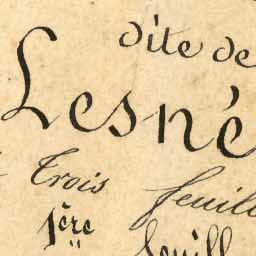 dite de
Lesné
Trois feuill
1ère feuill